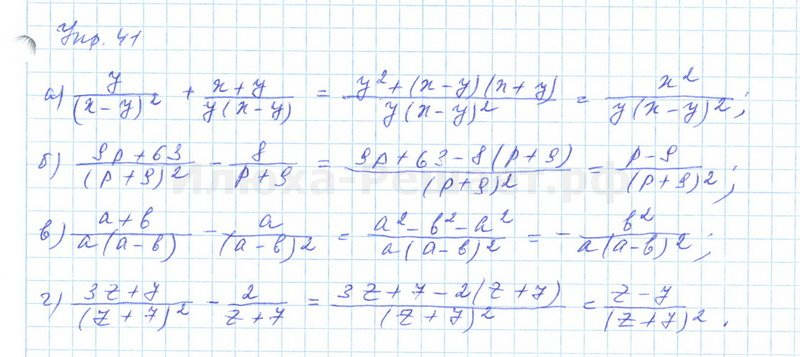 Упр. 41
а) y/(x-y)² + (x+y)/(y(x-y)) = (y²+(x-y)(x+y))/(y(x-y)²) = x²/(y(x-y)²);
б) (9p+63)/(p+9)² - 8/(p+9) = (9p+63-8(p+9))/(p+9)² = (p-9)/(p+9)²;
в) (a+b)/(a(a-b)) - a/(a-b)² = (a²-b²-a²)/(a(a-b)²) = -b²/(a(a-b)²);
г) (3z+7)/(z+7)² - 2/(z+7) = (3z+7-2(z+7))/(z+7)² = (z-7)/(z+7)².